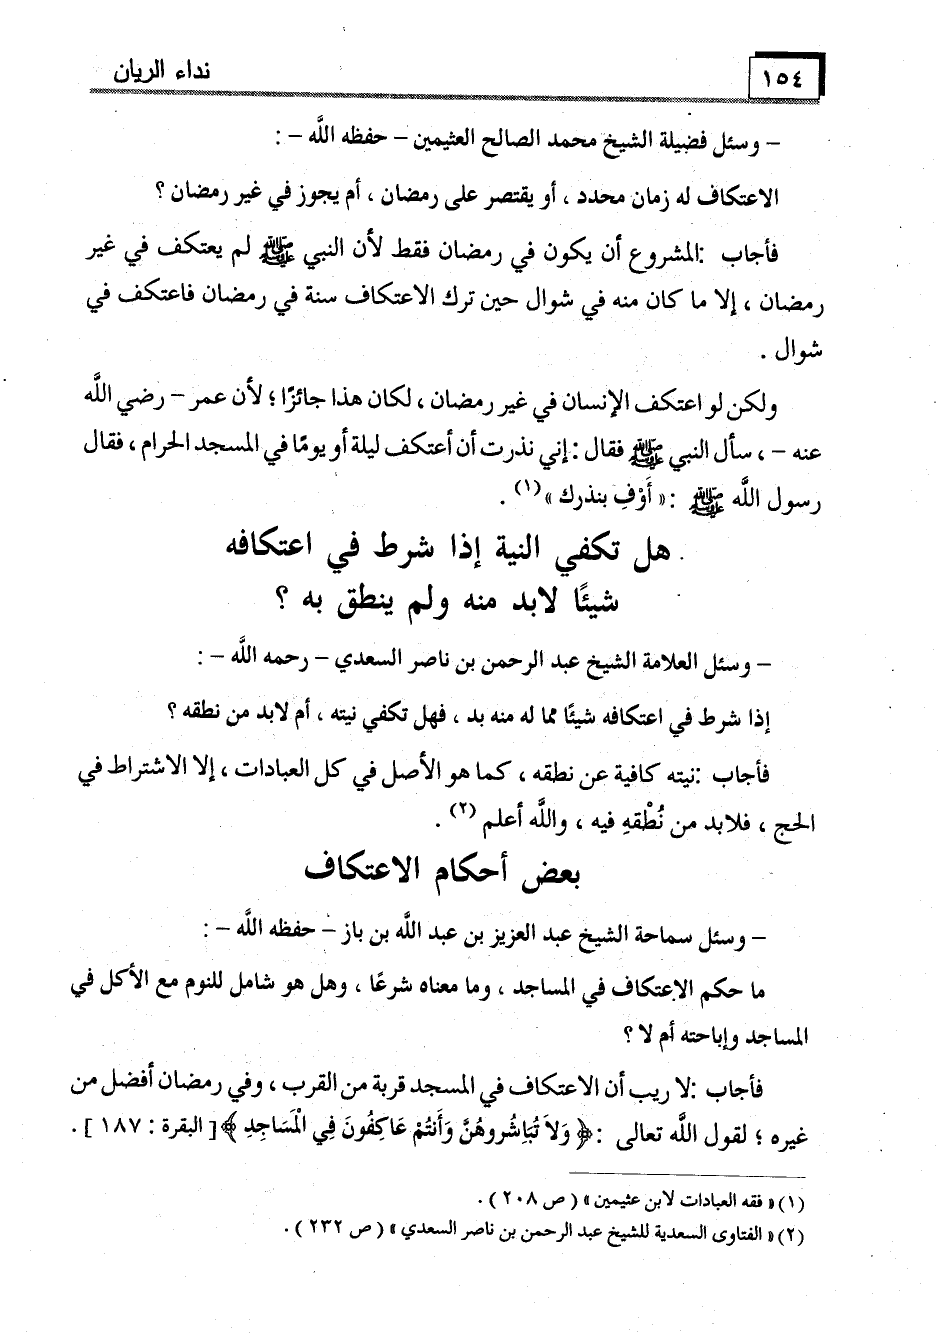 ١٥٤
نداء الريان
– وسئل فضيلة الشيخ محمد الصالح العثيمين – حفظه اللَّه – :
الاعتكاف له زمان محدد ، أو يقتصر على رمضان ، أم يجوز في غير رمضان ؟
فأجاب :المشروع أن يكون في رمضان فقط لأن النبي ﷺ لم يعتكف في غير
رمضان ، إلا ما كان منه في شوال حين ترك الاعتكاف سنة في رمضان فاعتكف في
شوال .
ولكن لو اعتكف الإنسان في غير رمضان ، لكان هذا جائزًا ؛ لأن عمر – رضي اللَّه
عنه – ، سأل النبي ﷺ فقال : إني نذرت أن أعتكف ليلة أو يومًا في المسجد الحرام ، فقال
رسول اللَّه ﷺ :« أَوْفِ بنذرك »(١) .
هل تكفي النية إذا شرط في اعتكافه
شيئًا لابد منه ولم ينطق به ؟
– وسئل العلامة الشيخ عبد الرحمن بن ناصر السعدي – رحمه اللَّه – :
إذا شرط في اعتكافه شيئًا مما له منه بد ، فهل تكفي نيته ، أم لابد من نطقه ؟
فأجاب :نيته كافية عن نطقه ، كما هو الأصل في كل العبادات ، إلا الاشتراط في
الحج ، فلابد من نُطْقهِ فيه ، واللَّه أعلم (٢) .
بعض أحكام الاعتكاف
– وسئل سماحة الشيخ عبد العزيز بن عبد اللَّه بن باز – حفظه اللَّه – :
ما حكم الاعتكاف في المساجد ، وما معناه شرعًا ، وهل هو شامل للنوم مع الأكل في
المساجد وإباحته أم لا ؟
فأجاب :لا ريب أن الاعتكاف في المسجد قربة من القرب ، وفي رمضان أفضل من
غيره ؛ لقول اللَّه تعالى :﴿ وَلاَ تُبَاشُروهُنَّ وَأَنتُمْ عَاكِفُونَ فِي الْمَسَاجِدِ ﴾[ البقرة : ١٨٧ ] .
(١) « فقه العبادات لابن عثيمين » ( ص ٢٠٨ ) .
(٢) « الفتاوى السعدية للشيخ عبد الرحمن بن ناصر السعدي » ( ص ٢٣٢ ) .